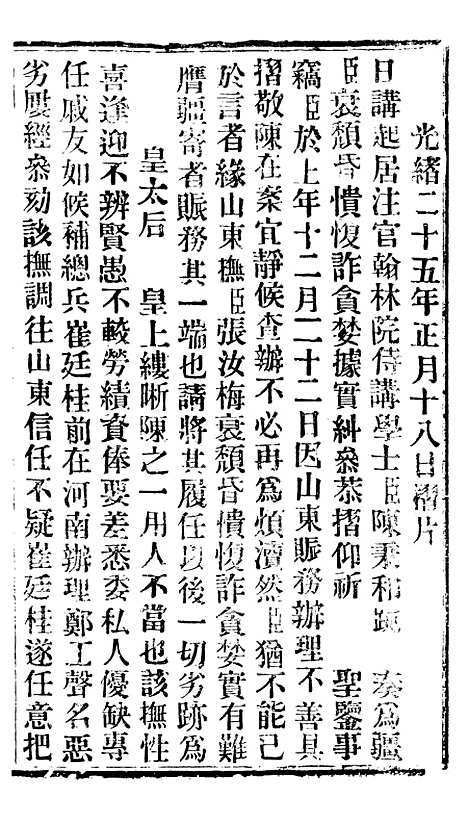 光緒二十五年正月十八日摺片
日講起居注官翰林院侍講學士臣陳秉和跪 奏爲疆
臣衰頹昏憒愎詐貪婪據實糾叅恭摺仰祈 聖鑒事
竊臣於上年十二月二十二日因山東賑務辦理不善具
摺敬陳在案宜靜候查辦不必再爲煩瀆然臣猶不能已
於言者緣山東撫臣張汝梅衰頹昏憒愎詐貪婪實有難
膺疆寄者賑務其一端也請將其履任以後一切劣跡爲
皇太后 皇上縷晰陳之一用人不當也該撫性
喜逢迎不辨賢愚不較勞績資俸要差悉委私人優缺專
任戚友如候補總兵崔廷桂前在河南辦理鄭工聲名惡
劣屢經叅劾該撫調往山東信任不疑崔廷桂遂任意把